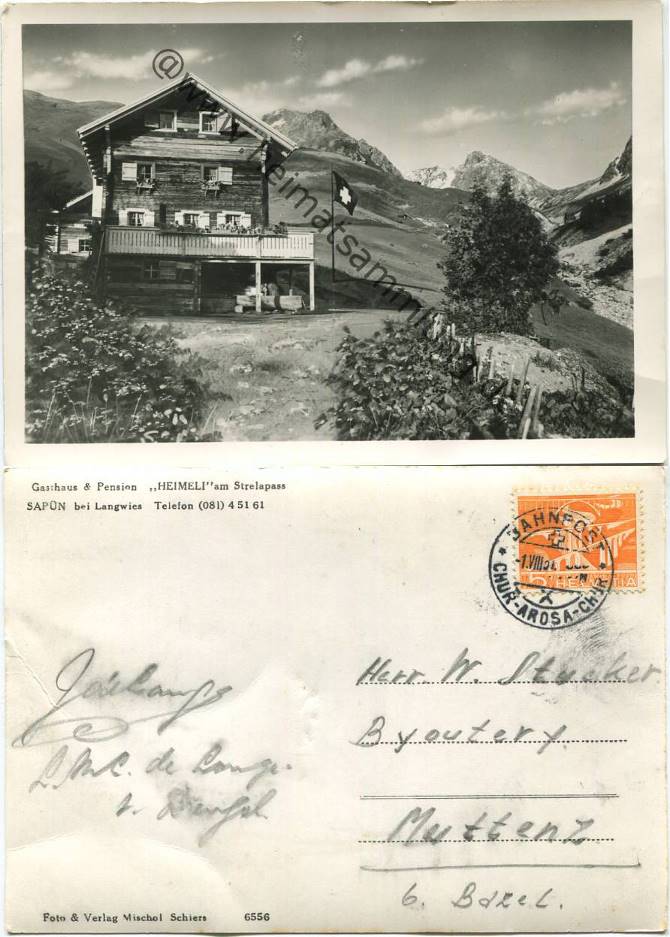 @ www.heimatsammlu
Gasthaus & Pension „HEIMELI" am Strelapass
SAPÜN bei Langwies Telefon (081) 4 51 61
BAHNPOST
-1.VIII.5
X
* CHUR-AROSA-CHUR *
5 HELVETIA
Herr. W. Stycker
Byoutery.
Muttenz
b. Basel.
de
Foto & Verlag Mischol Schiers 6556